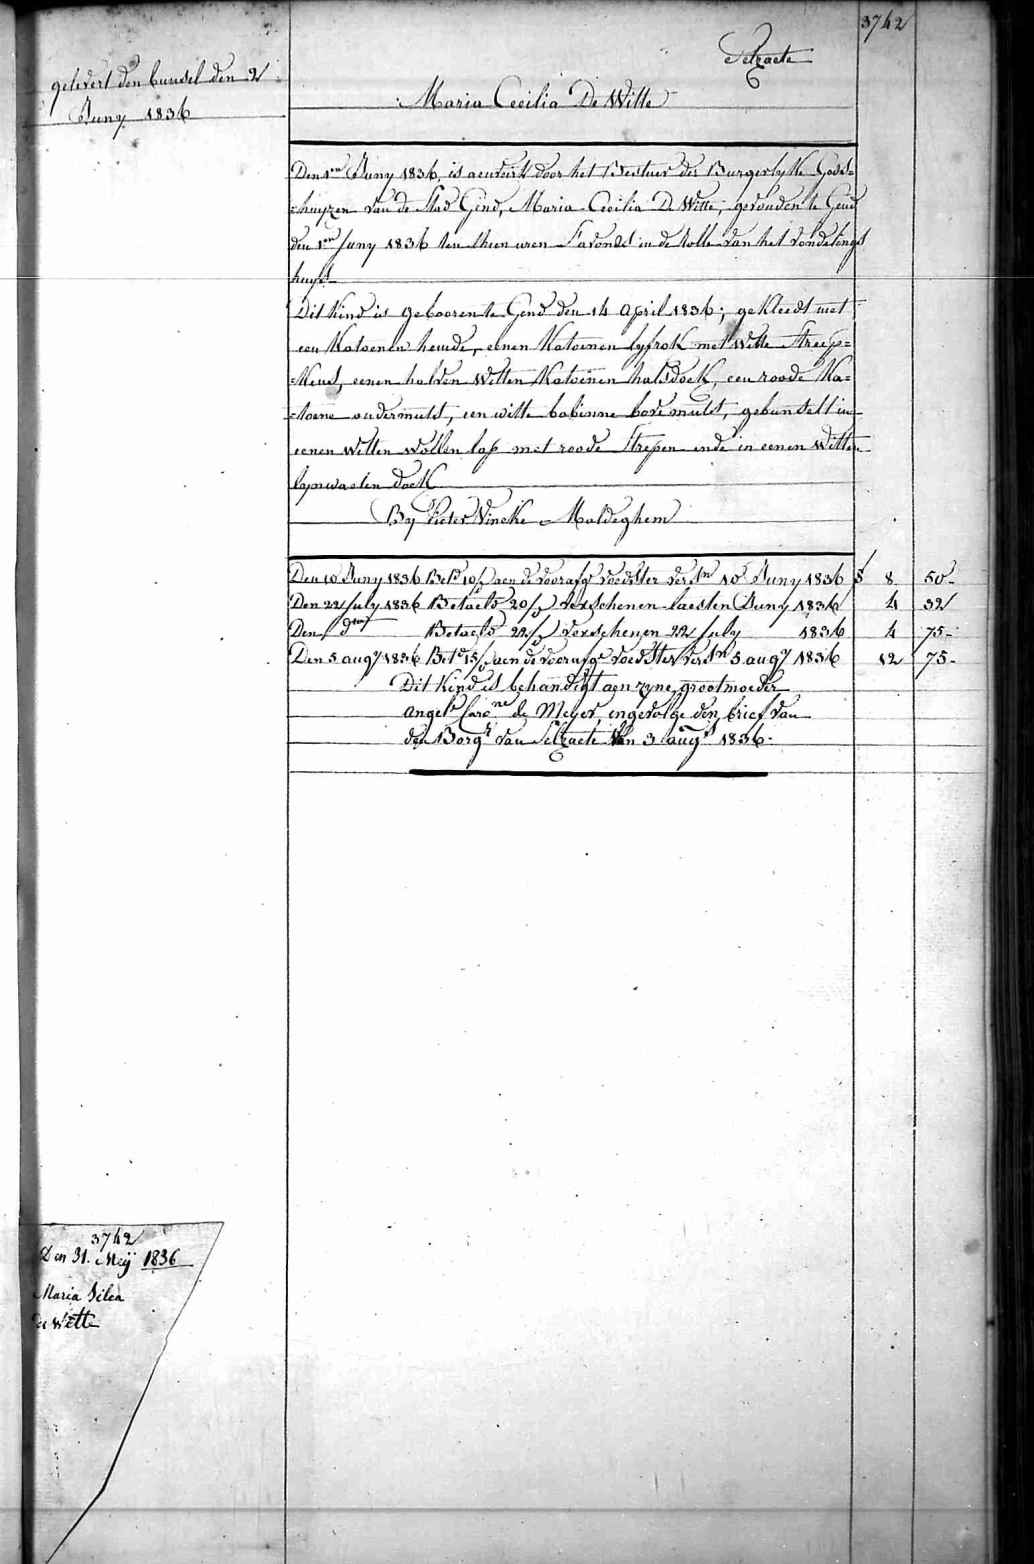 3742
Selzaete
gelevert den bunsel den 2
Juny 1836
Maria Cecilia De Witte
Den 1en Juny 1836, is aenveirt door het Bestuer der Burgerlyke Gods=
=huyzen van de Stad Gend, Maria Cecilia De Witte, gevonden te Gend
den 1en Juny 1836 ten thien uren S'avonds in de rolle van het vondelings
huys.
Dit Kind is gebooren te Gend den 14 april 1836; gekleedt met
een Katoenen hemde, eenen Katoenen lyfrok met witte Streep=
=kens, eenen halven Witten Katoenen halsdoek, een roode Ka=
=toene ondermuts, een witte bobinne bovemuts, gebunselt in
eenen Witten Wollen lap met roode Strepen ende in eenen Witten
lynwaeten doek
By Pieter Vincke Maldeghem
Den 10 Juny 1836 Bet. 10/ aen de voorafge voedster verstn 10 Juny 1836 8 50
Den 22 July 1836 Betaelt 20/ verschenen laesten Juny 1836 4 32
Den dto Betaelt 22/ verschenen 22 July 1836 4 75
Den 5 augt 1836 Bet. 15/ aen de voorafge voedster verstn 5 augt 1836 12 75
Dit Kind is behandigt aen zyne grootmoeder
angel. Carone de Meyer, ingevolge den brief van
den Borgr van Selzaete van 3 augt 1836.
3742
Den 31. Meÿ 1836
Maria Silea
de Wette